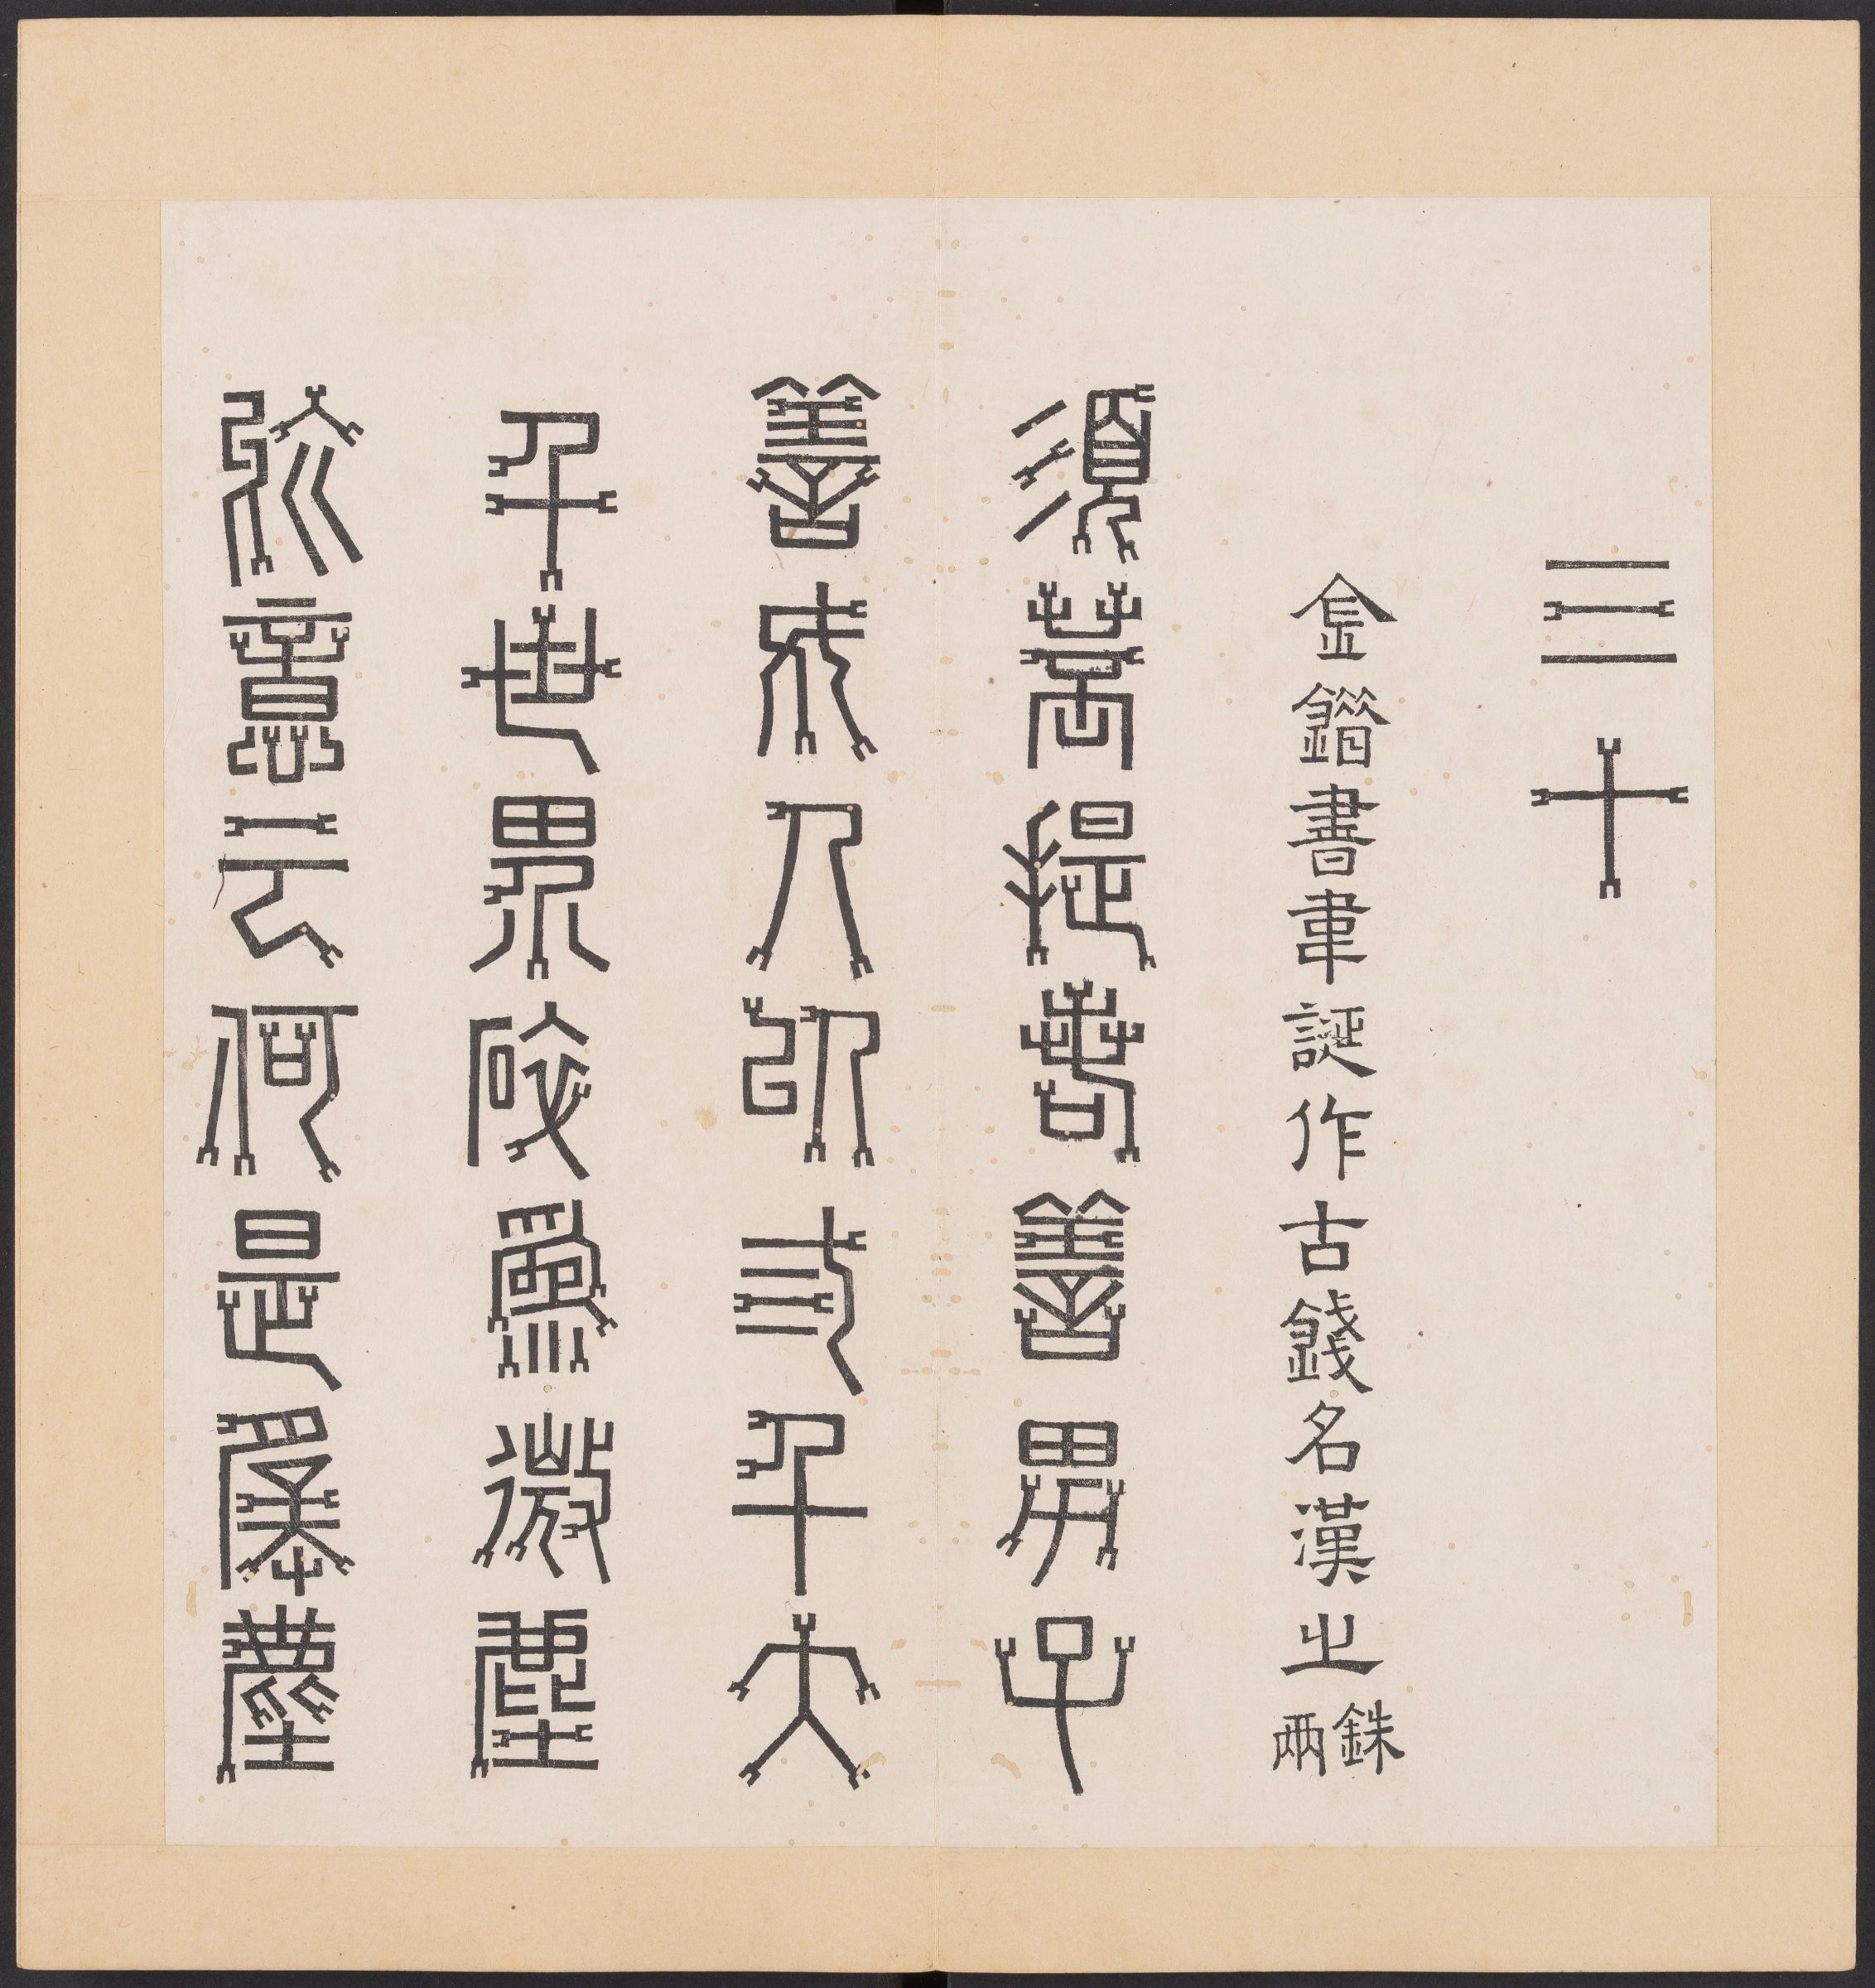 三十
金錯書韋誕作古錢名漢之銖兩
須菩提若善男子
善女人以弎千大
千世界碎為微塵
於意云何是微塵